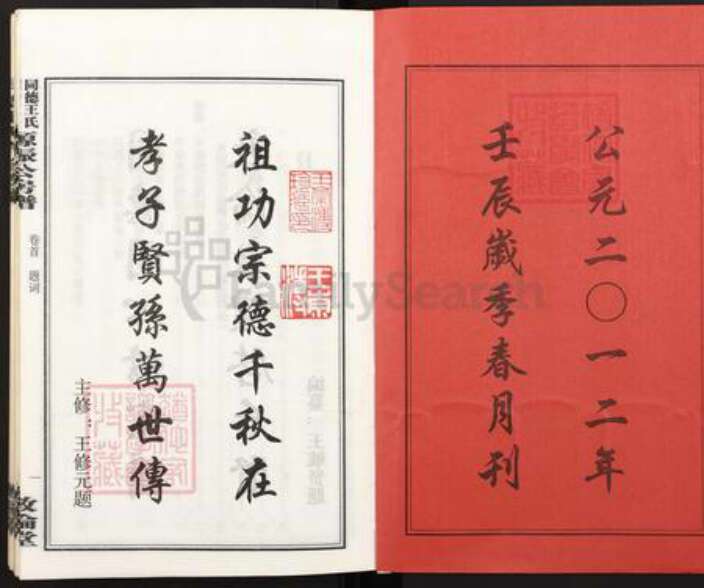 公元二〇一二年
壬辰歲季春月刊
祖功宗德千秋在
孝子賢孫萬世傳
主修：王修元题
同德王氏
房譜
卷首 题词
一
敦倫堂
FamilySearch